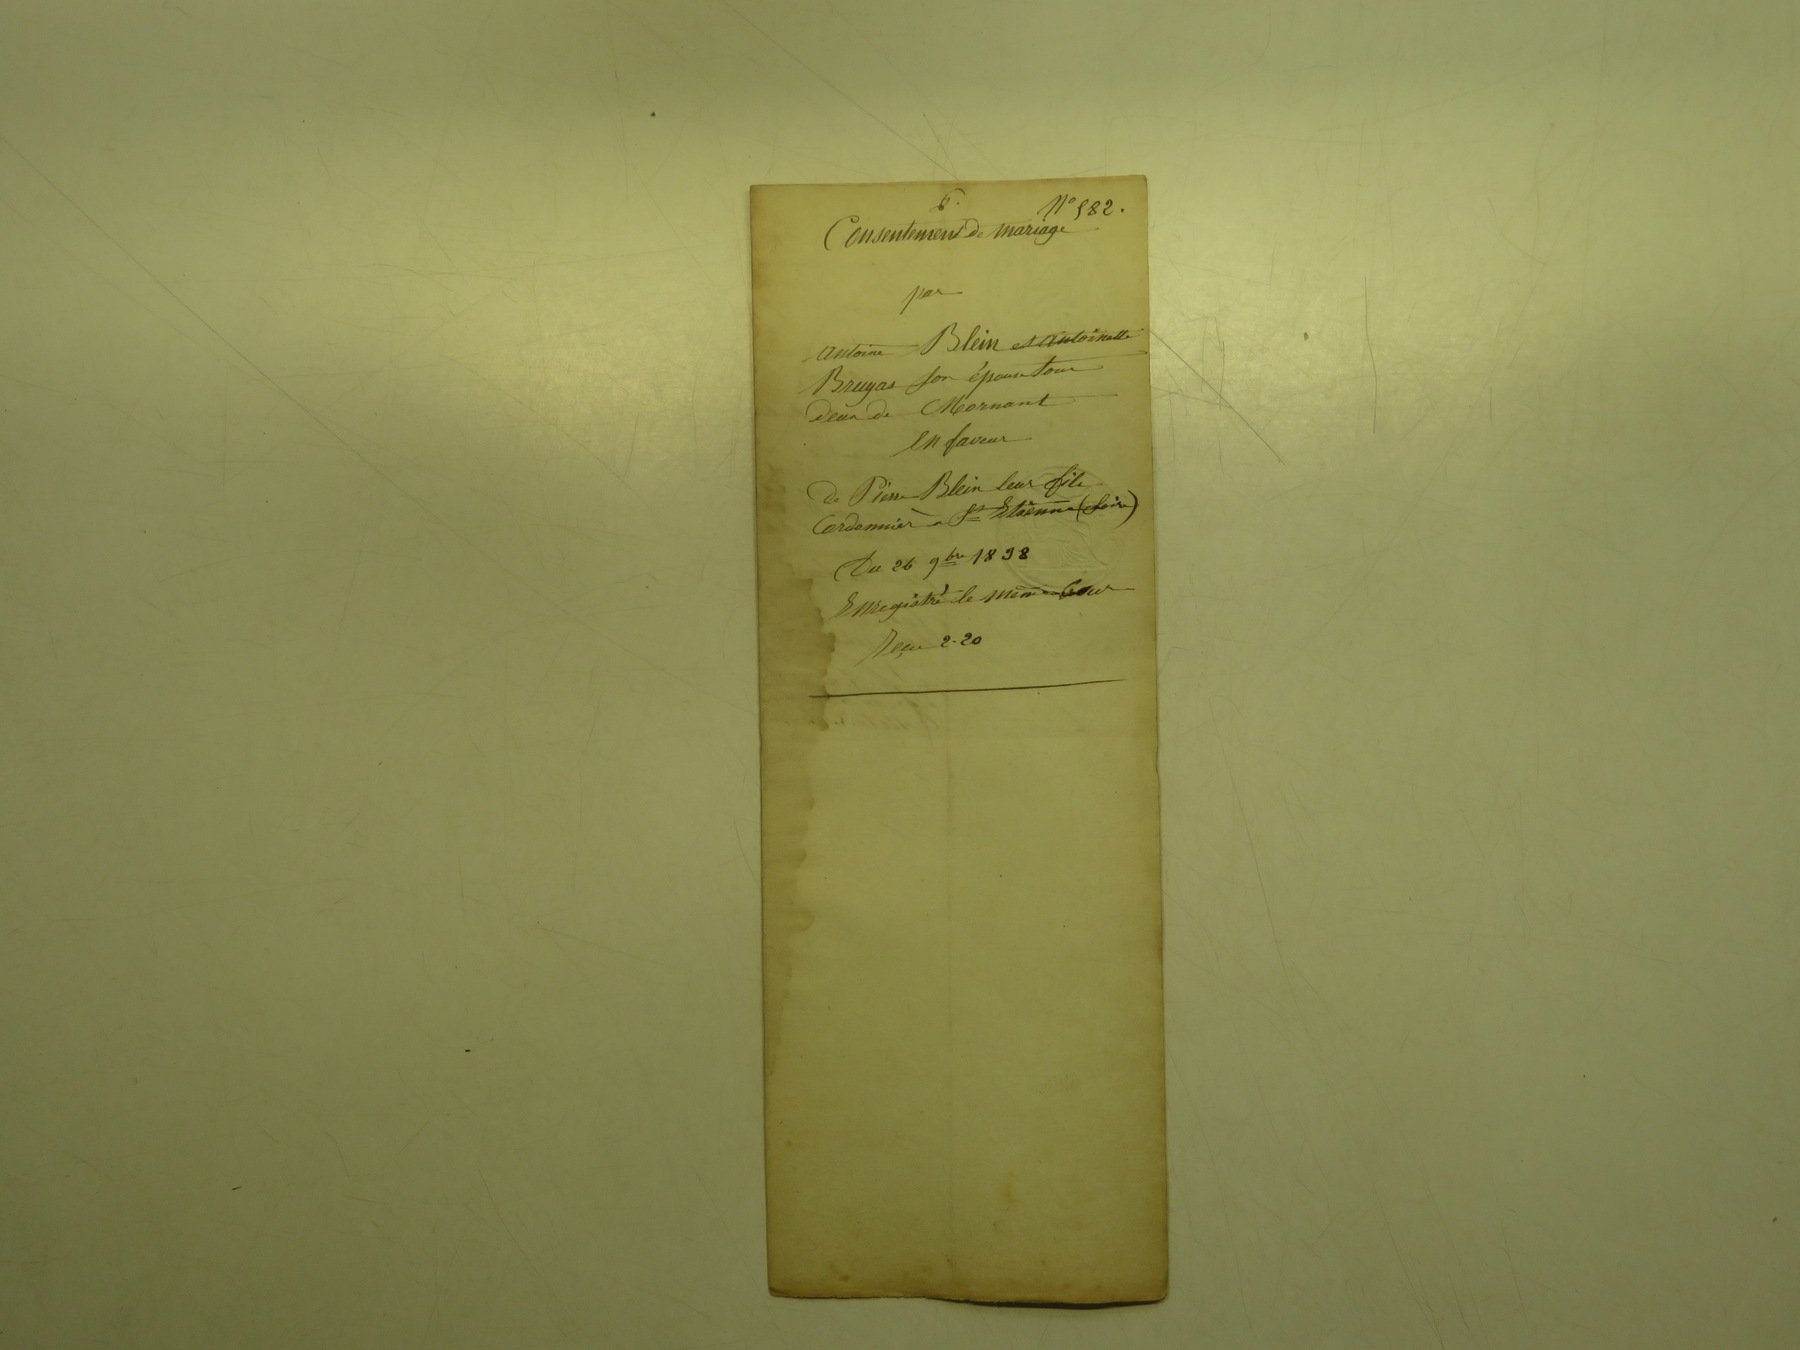 N° 582.
Consentement de mariage
par
antoine Blein et antoinette
Bruyas son épouse tous
deux de Mornant
En faveur
de Pierre Blein leur fils
Cordonnier a St Etienne (Loire)
Du 26 9bre 1838
Enregistré le meme Jour
Reçu 2-20